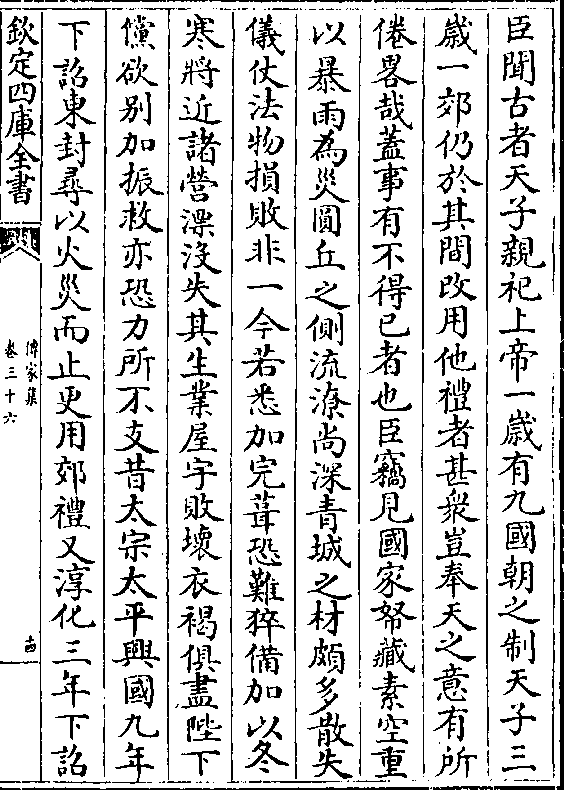 臣聞古者天子親祀上帝一歳有九國朝之制天子三
歳一郊仍於其間改用他禮者甚衆豈奉天之意有所
倦畧哉葢事有不得已者也臣竊見國家帑藏素空重
以暴雨為災圓丘之側流潦尚深青城之材頗多散失
儀仗法物損敗非一今若悉加完葺恐難猝備加以冬
寒將近諸營漂没失其生業屋宇敗壞衣褐俱盡陛下
儻欲别加振救亦恐力所不支昔太宗太平興國九年
下詔東封尋以火災而止更用郊禮又淳化三年下詔
欽定四庫全書
傳家集
卷三十六
十四